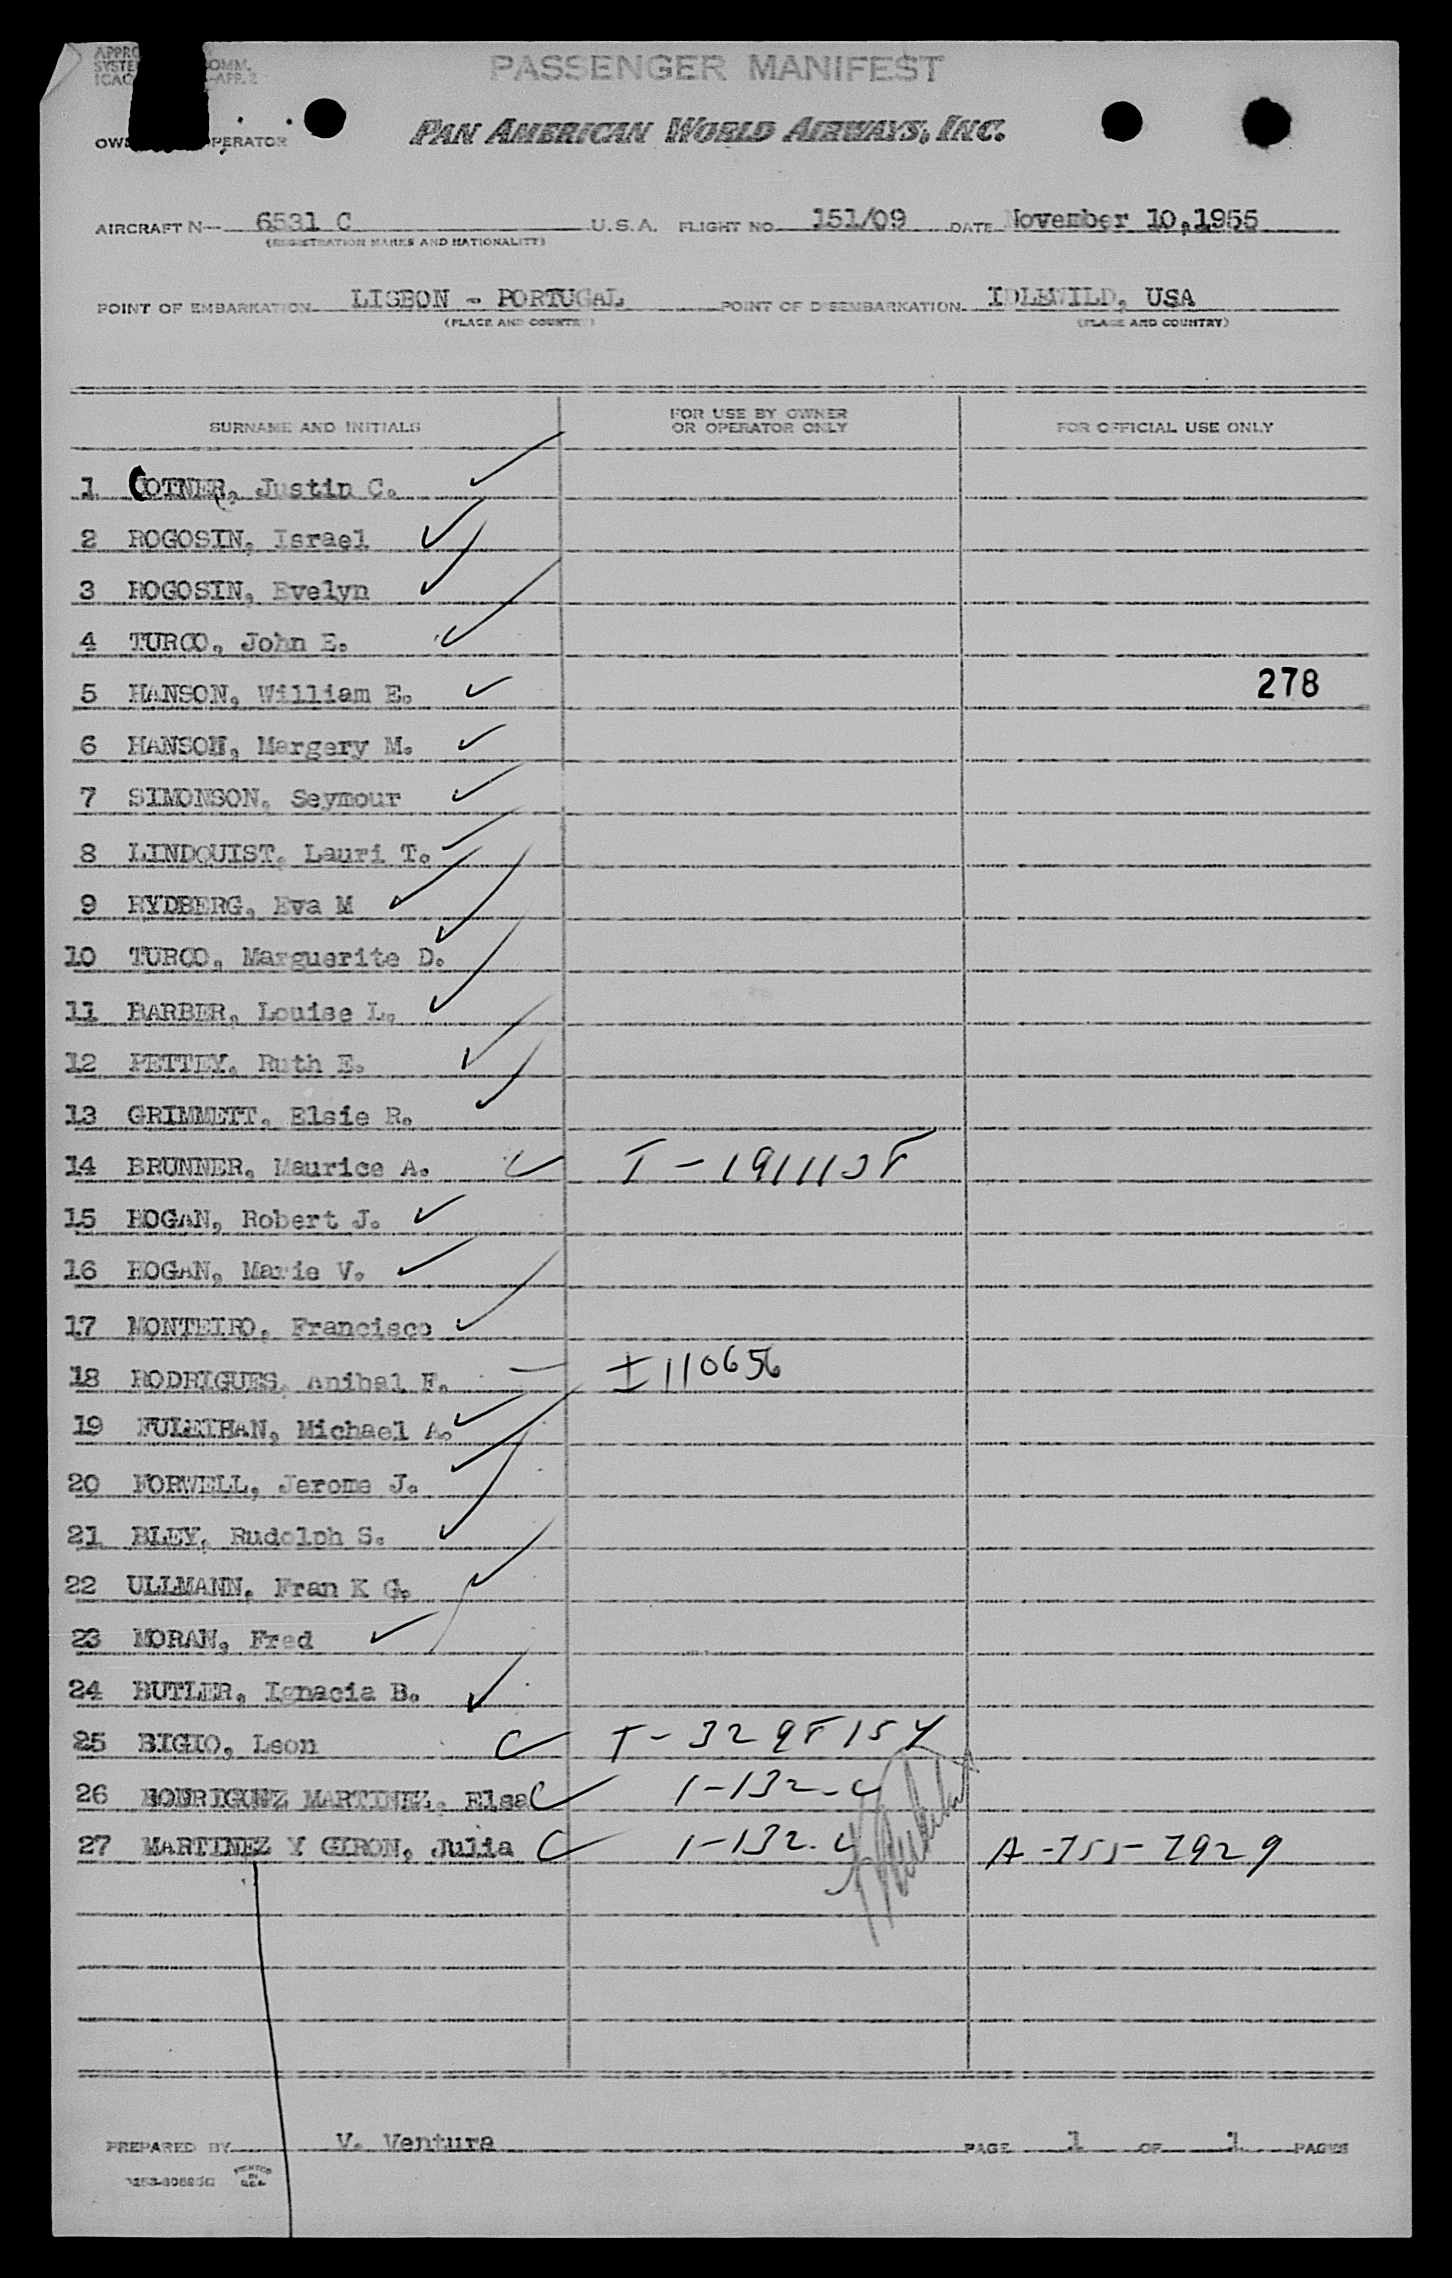 PASSENGER MANIFEST
PAN AMERICAN WORLD AIRWAYS, INC.
AIRCRAFT N— 6531 C U.S.A. FLIGHT NO. 151/09 DATE November 10,1955
(REGISTRATION MARKS AND NATIONALITY)
POINT OF EMBARKATION LISBON - PORTUGAL POINT OF DISEMBARKATION IDLEWILD, USA
(PLACE AND COUNTRY) (PLACE AND COUNTRY)
SURNAME AND INITIALS FOR USE BY OWNER OR OPERATOR ONLY FOR OFFICIAL USE ONLY
1 COTNER, Justin C.
2 ROGOSIN, Israel
3 ROGOSIN, Evelyn
4 TURCO, John E.
5 HANSON, William E. 278
6 HANSON, Margery M.
7 SIMONSON, Seymour
8 LINDQUIST, Lauri T.
9 RYDBERG, Eva M
10 TURCO, Marguerite D.
11 BARBER, Louise L.
12 PETTEY, Ruth E.
13 GRIMMETT, Elsie R.
14 BRUNNER, Maurice A.
15 HOGAN, Robert J.
16 HOGAN, Marie V.
17 MONTEIRO, Francisco
18 RODRIGUES, Anibal F. I 110656
19 FULEIHAN, Michael A.
20 NORWELL, Jerome J.
21 BLEY, Rudolph S.
22 ULLMANN, Fran K G.
23 MORAN, Fred
24 BUTLER, Ignacia B.
25 BIGIO, Leon
26 MARTINEZ, Elsa 1-132-4
27 MARTINEZ Y GIRON, Julia 1-132-4 A-755-7929
PREPARED BY V. Ventura PAGE 1 OF 1 PAGES
PRINTED IN U.S.A.